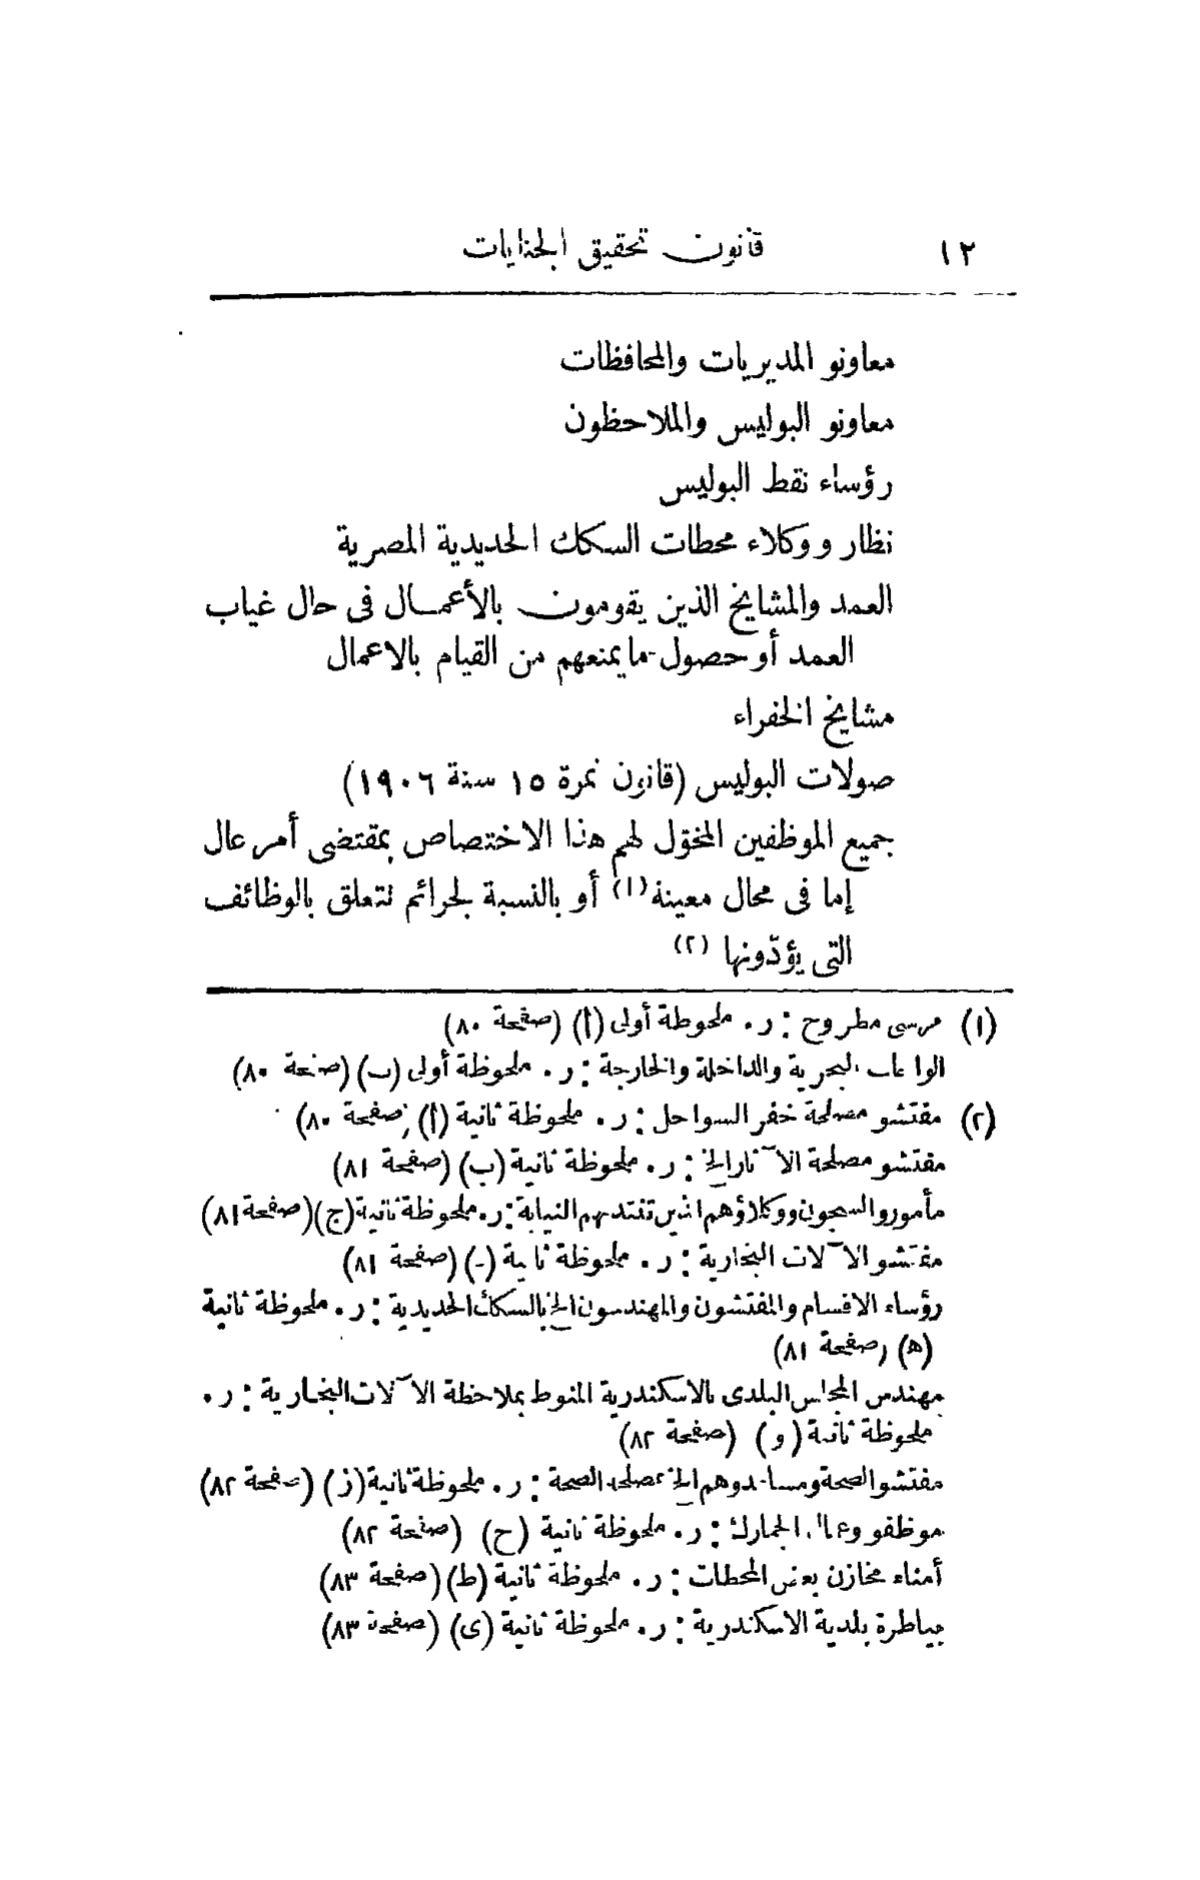 ١٢ قانون تحقيق الجنايات
معاونو المديريات والمحافظات
معاونو البوليس والملاحظون
رؤساء نقط البوليس
نظار ووكلاء محطات السكك الحديدية المصرية
العمد والمشايخ الذين يقومون بالأعمال فى حال غياب
العمد أو حصول ما يمنعهم من القيام بالاعمال
مشايخ الخفراء
صولات البوليس (قانون نمرة ١٥ سنة ١٩٠٦)
جميع الموظفين المخوّل لهم هذا الاختصاص بمقتضى أمر عال
إما فى محال معينة (١) أو بالنسبة لجرائم تتعلق بالوظائف
التى يؤدّونها (٢)
(١) مرسى مطروح : ر. ملحوظة أولى (أ) (صفحة ٨٠)
الواحات البحرية والداخلة والخارجة : ر. ملحوظة أولى (ب) (صفحة ٨٠)
(٢) مفتشو مصلحة خفر السواحل : ر. ملحوظة ثانية (أ) (صفحة ٨٠)
مفتشو مصلحة الآثار الخ : ر. ملحوظة ثانية (ب) (صفحة ٨١)
مأمورو السجون ووكلاؤهم الذين تنتدبهم النيابة : ر. ملحوظة ثانية (ج) (صفحة ٨١)
مفتشو الآلات البخارية : ر. ملحوظة ثانية (صفحة ٨١)
رؤساء الاقسام والمفتشون والمهندسون الخ بالسكك الحديدية : ر. ملحوظة ثانية
(ه) (صفحة ٨١)
مهندس المجلس البلدى بالاسكندرية المنوط بملاحظة الآلات البخارية : ر.
ملحوظة ثانية (و) (صفحة ٨٢)
مفتشو الصحة ومساعدوهم الخ بمصلحة الصحة : ر. ملحوظة ثانية (ز) (صفحة ٨٢)
موظفو وعمال الجمارك : ر. ملحوظة ثانية (ح) (صفحة ٨٢)
أمناء مخازن بعض المحطات : ر. ملحوظة ثانية (ط) (صفحة ٨٣)
بياطرة بلدية الاسكندرية : ر. ملحوظة ثانية (ى) (صفحة ٨٣)